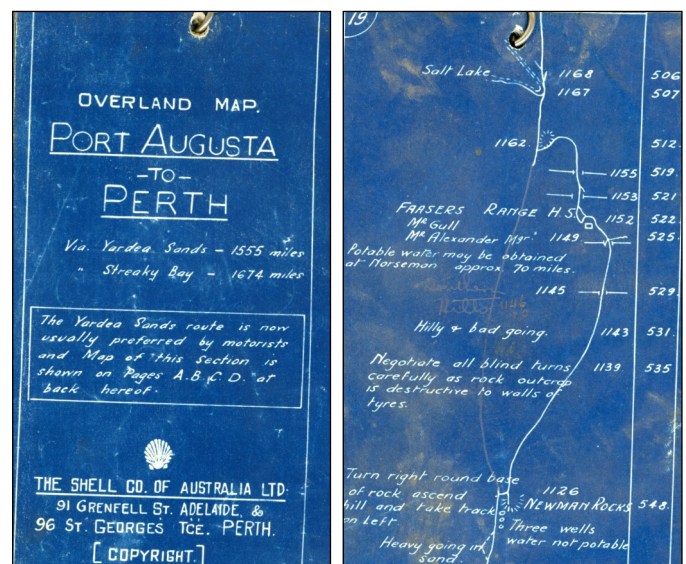 OVERLAND MAP.
PORT AUGUSTA
-TO-
PERTH
Via. Yardea Sands - 1555 miles
" Streaky Bay - 1674 miles
The Yardea Sands route is now
usually preferred by motorists
and Map of this Section is
shown on Pages A.B.C.D. at
back hereof.
THE SHELL CO. OF AUSTRALIA LTD.
91 GRENFELL ST. ADELAIDE, &
96 ST. GEORGES TCE. PERTH.
[COPYRIGHT.]
19
Salt Lake 1168 506
1167 507
1162. 512.
1155 519.
1153 521
FRASERS RANGE H.S. 1152 522.
Mr Gull
Mr Alexander Mgr. 1149 525.
Potable water may be obtained
at Norseman approx 70 miles.
1145 529.
Hilly & bad going. 1143 531.
Negotiate all blind turns 1139 535
carefully as rock outcrop
is destructive to walls of
tyres.
Turn right round base
of rock ascend 1126
hill and take track NEWMAN ROCKS 548.
on Left
Three wells
water not potable
Heavy going in
sand.